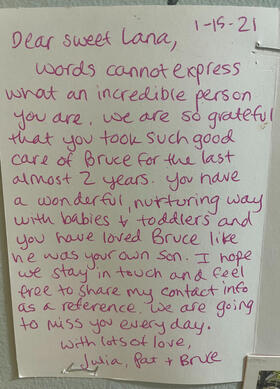 1-15-21
Dear sweet Lana,
words cannot express
what an incredible person
you are. we are so grateful
that you took such good
care of Bruce for the last
almost 2 years. you have
a wonderful, nurturing way
with babies & toddlers and
you have loved Bruce like
he was your own son. I hope
we stay in touch and feel
free to share my contact info
as a reference. We are going
to miss you every day.
with lots of love,
Julia, Pat + Bruce